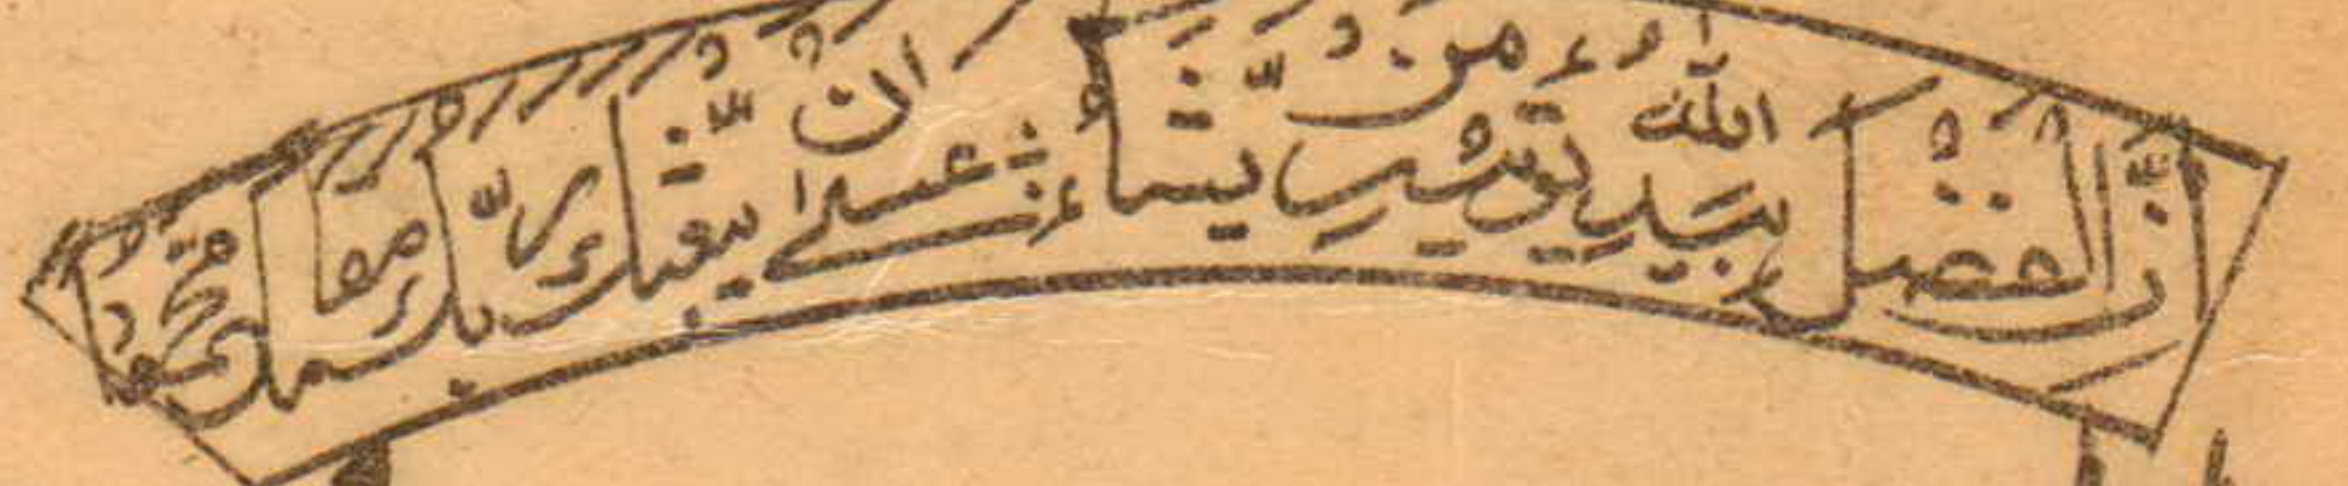 ان الفضل بيد الله يؤتيه من يشاء عسى ان يبعثك ربك مقاما محمودا